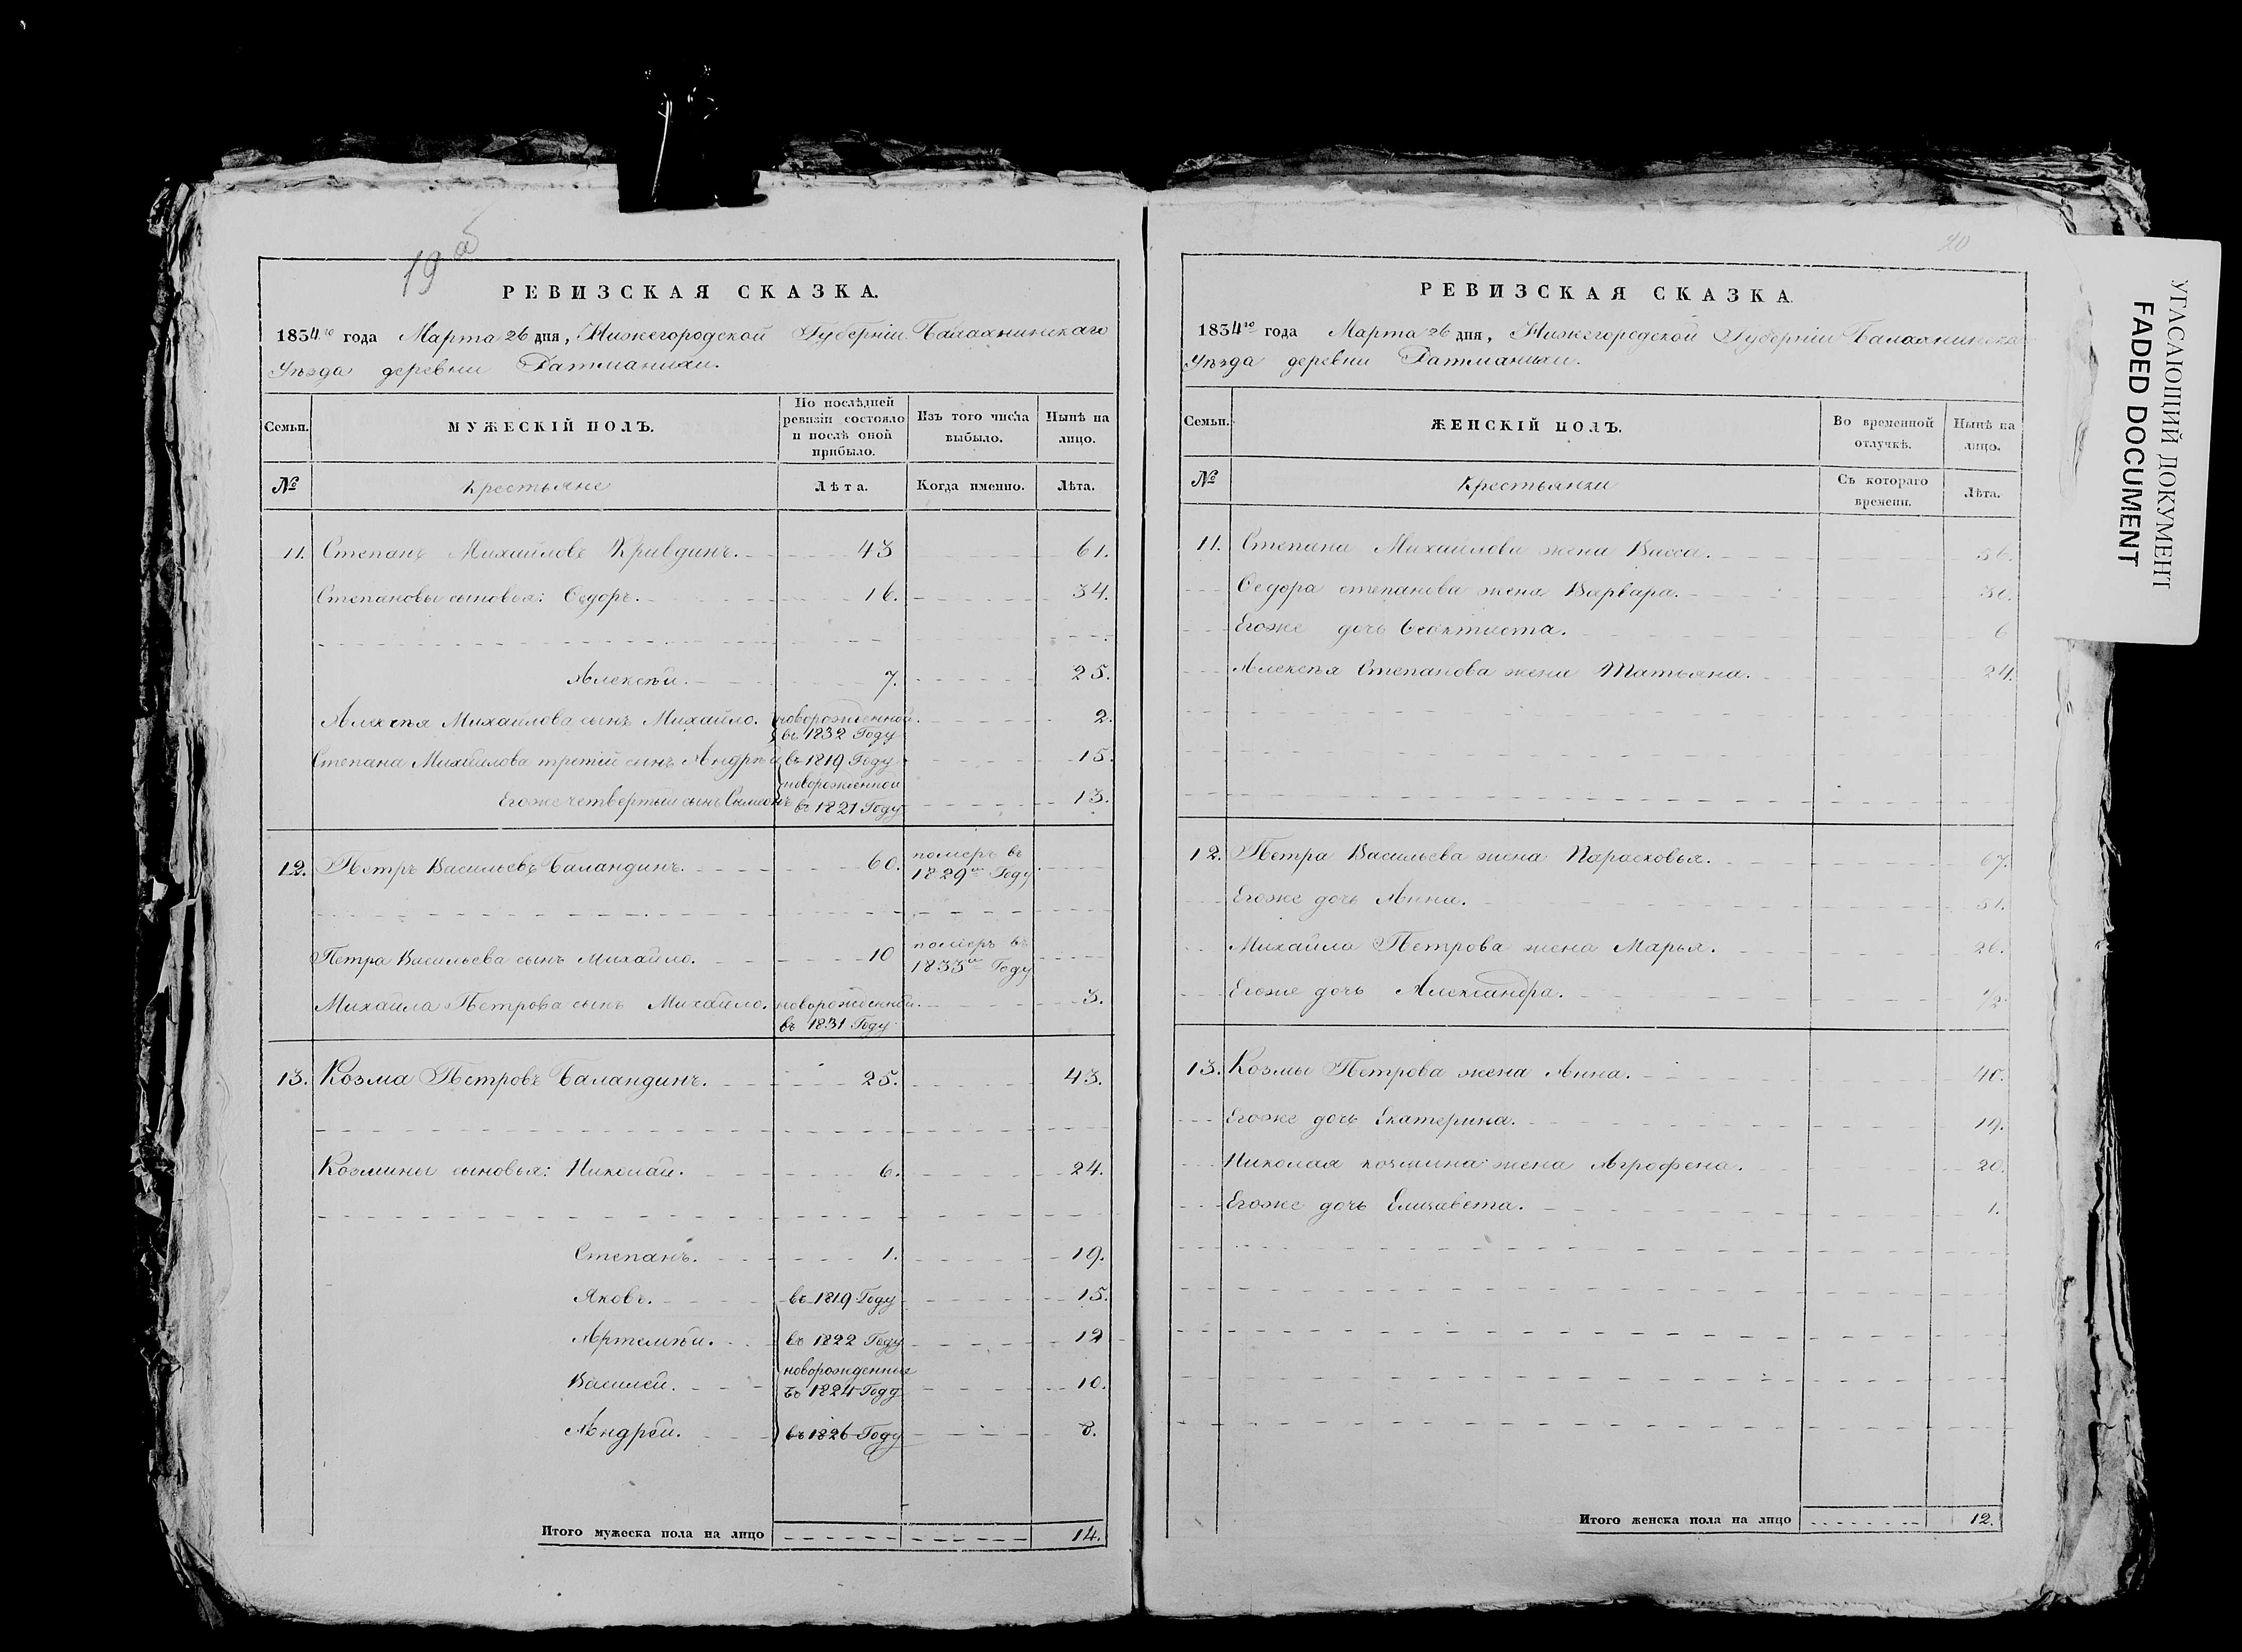 19 об
РЕВИЗСКАЯ СКАЗКА.
1834го года Марта 26 дня, Нижегородской Губернiи Балахнинскаго
Уѣзда деревни Ратманихи.
Семьи. МУЖЕСКIЙ ПОЛЪ. По послѣдней ревизiи состояло и послѣ оной прибыло. Изъ того числа выбыло. Нынѣ на лицо.
№ Крестьяне Лѣта. Когда именно. Лѣта.
11. Степанъ Михайловъ Кривдинъ. 43 61.
Степановы сыновья: Ѳедоръ. 16. 34.
Алексѣй. 7. 25.
Алексѣя Михайлова сынъ Михайло. новорожденной въ 1832 Году 2.
Степана Михайлова третiй сынъ Андрѣй въ 1819 Году 15.
Егоже четвертый сынъ Симеонъ новорожденной въ 1821 Году 13.
12. Петръ Васильевъ Баландинъ. 60. померъ въ 1829м Году
Петра Васильева сынъ Михайло. 10 померъ въ 1833м Году
Михайла Петрова сынъ Михайло. новорожденной въ 1831 Году 3.
13. Козма Петровъ Баландинъ. 25. 43.
Козмины сыновья: Николай. 6. 24.
Степанъ. 1. 19.
Яковъ. въ 1819 Году 15.
Артемѣй. въ 1822 Году 12
Василей. новорожденные въ 1824 Году 10.
Андрей. въ 1826 Году 8.
Итого мужеска пола на лицо 14.
20
РЕВИЗСКАЯ СКАЗКА.
1834го года Марта 26 дня, Нижегородской Губернiи Балахнинска
Уѣзда деревни Ратманихи.
Семьи. ЖЕНСКIЙ ПОЛЪ. Во временной отлучкѣ. Нынѣ на лицо.
№ Крестьянки Съ котораго времени. Лѣта.
11. Степана Михайлова жена Васса.
Ѳедора степанова жена Варвара. 30.
Егоже дочь Ѳеоктиста. 6
Алексѣя Степанова жена Татьяна. 24.
12. Петра Васильева жена Парасковья. 67.
Егоже дочь Анна.
Михайла Петрова жена Марья. 26.
Егоже дочь Александра. 1/2.
13. Козмы Петрова жена Анна. 40.
Егоже дочь Екатерина. 19.
Николая козмина жена Агрофена. 20.
Егоже дочь Елизавета. 1.
Итого женска пола на лицо 12.
УГАСАЮЩИЙ ДОКУМЕНТ
FADED DOCUMENT